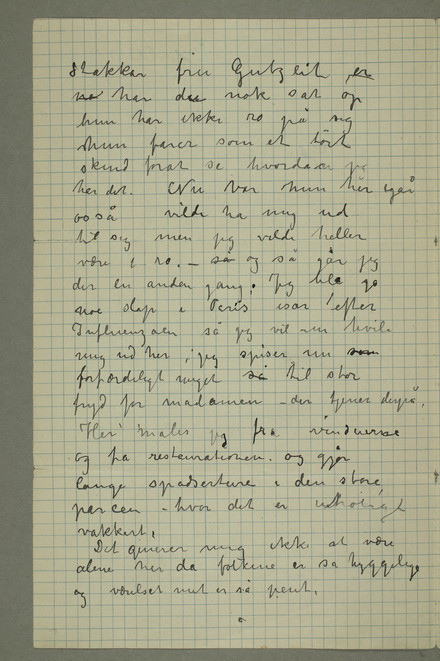 stakkar fru Gutzeit er
ne har du nok sat op
hun har ikke ro på sig
hun farer som et tört
skind forat se hvordan jeg
har det. Nu var hun her igår
også vilde ha mig ud
til sig men jeg vilde heller
være i ro. – så og så går jeg
der en anden gang. Jeg ble jo
noe slap i Paris især efter
Influenzaen så jeg vil nu hvile
mig ud her, jeg spiser nu som
forfærdeligt meget så til stor
fryd for madamen – der tjener derpå.
Her males jeg fra vinduerne
og fra restaurationen. og gjør
lange spadserture i den store
parcen – hvor det er utroligt
vakkert.
Det generer mig ikke at være
alene her da folkene er så hyggelige
og værelset mit er så pent.